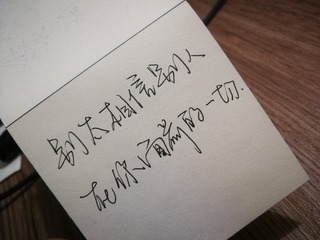 别太相信别人
在你面前的一切.